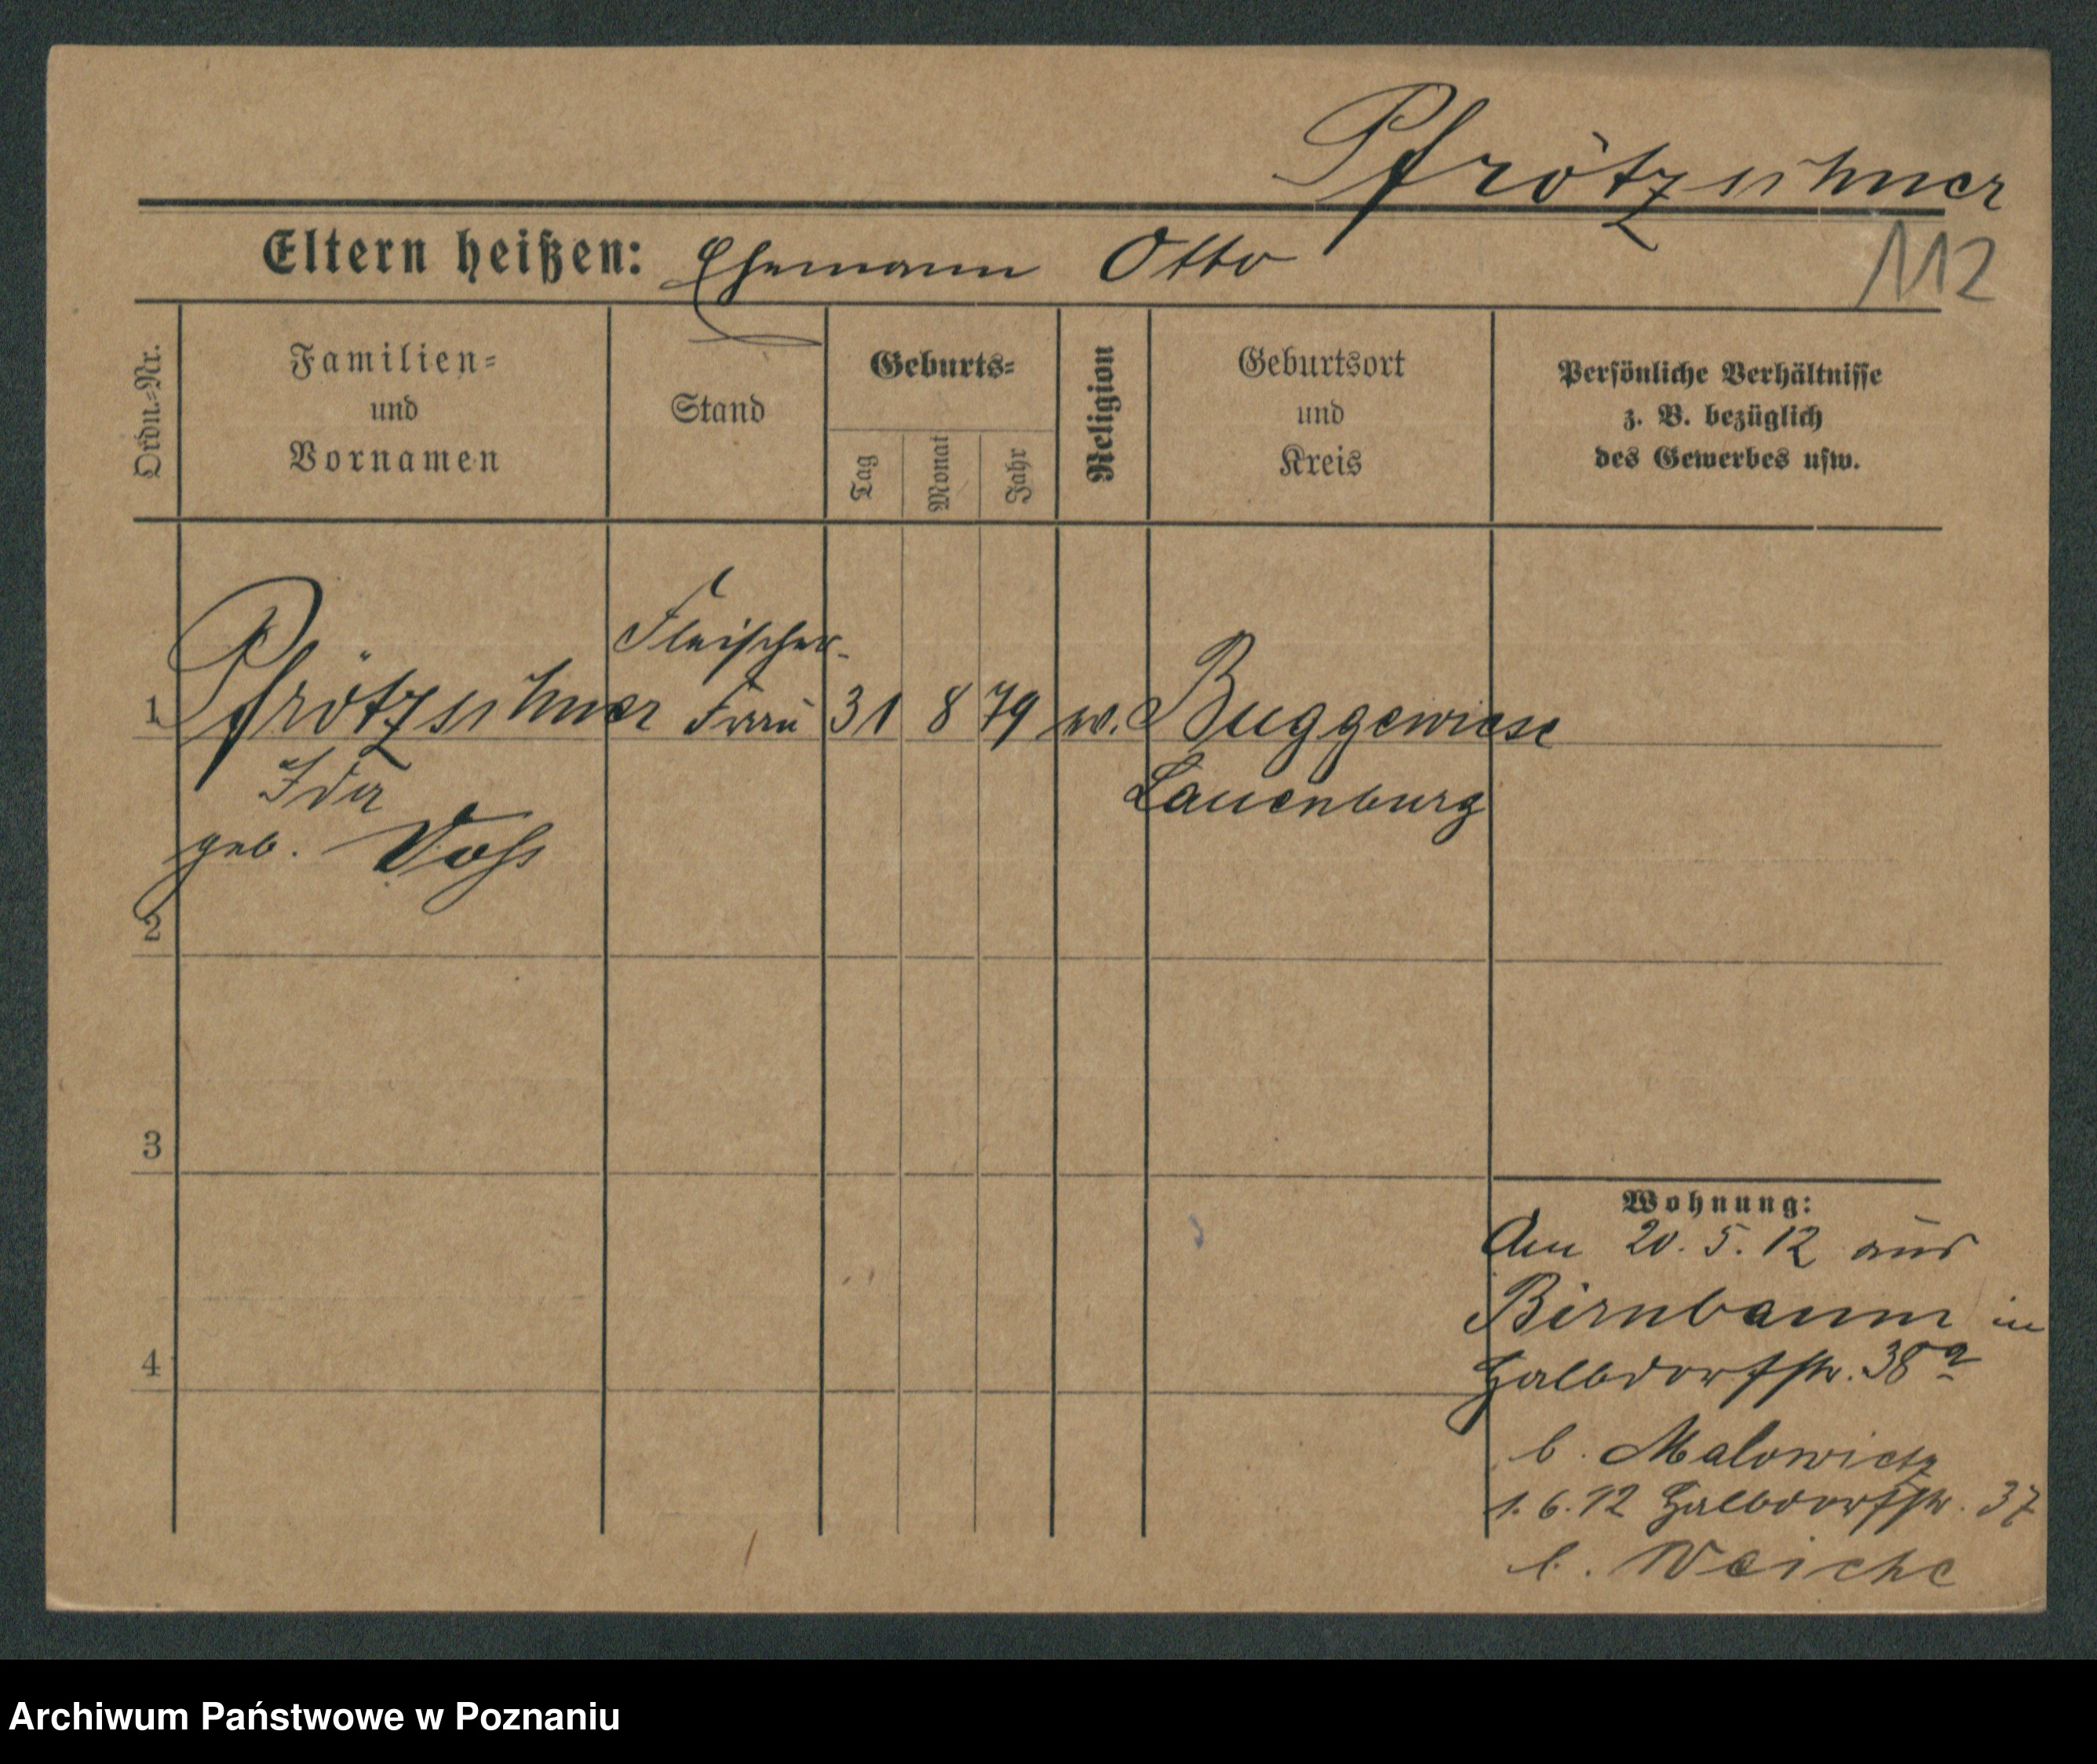 Pfrötzschner
Eltern heißen: Ehemann Otto
112
Ordn.-Nr.
Familien-
und
Vornamen
Stand
Geburts-
Tag
Monat
Jahr
Religion
Geburtsort
und
Kreis
Persönliche Verhältnisse
z. B. bezüglich
des Gewerbes usw.
Fleischer-
1 Pfrötzschner Frau 31 8 79 ev. Buggewiese
Ida Lauenburg
geb. Voß
2
3
4
Wohnung:
Am 20. 5. 12 aus
Birnbaum in
Halbdorfstr. 38a
b. Malowictz
1. 6. 12 Halbdorfstr. 37
b. Weiche
Archiwum Państwowe w Poznaniu